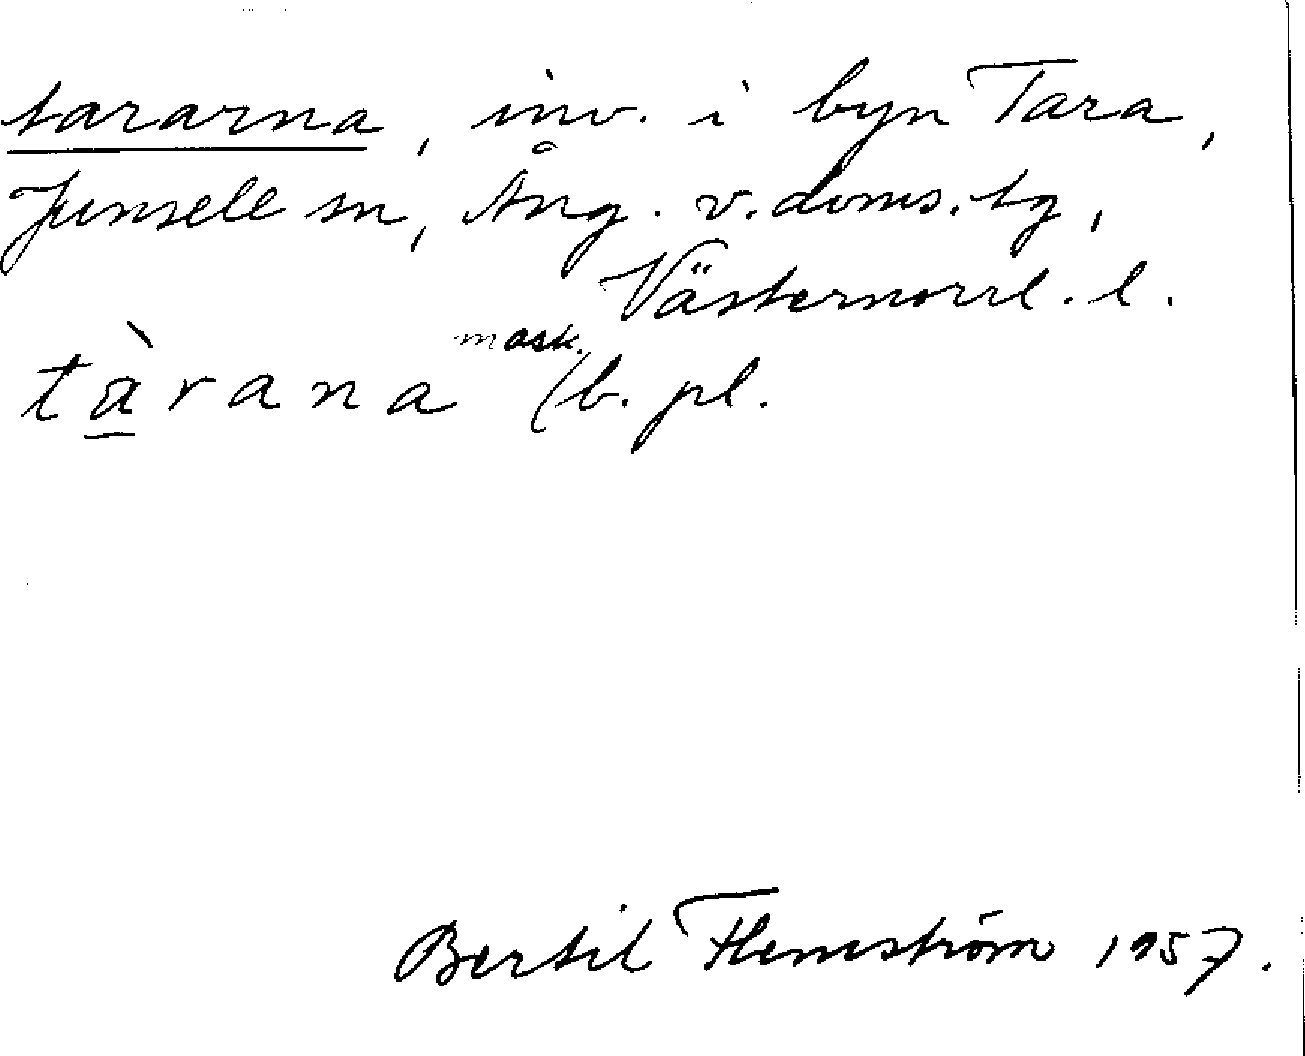 tararna, inv. i byn Tara,
Junsele sn, Ång. v. doms. tg,
Västernorrl. l.
tàrana mask. (b. pl.
Bertil Flemström 1957.